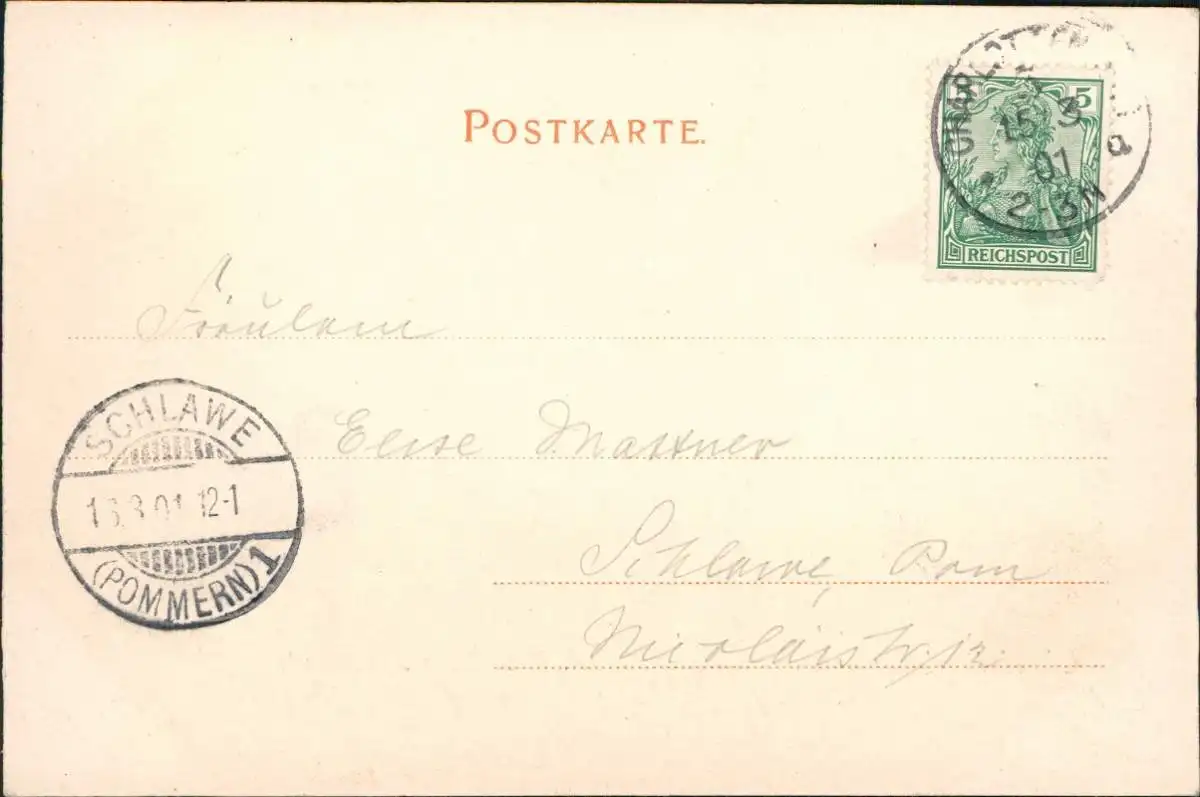 POSTKARTE.
5 5
15 3
01
2-3N
REICHSPOST
Fräulein
Elise Mattner
Schlawe, Pom
Nicolaistr. 12.
SCHLAWE
16.3.01. 12-1
(POMMERN) 1